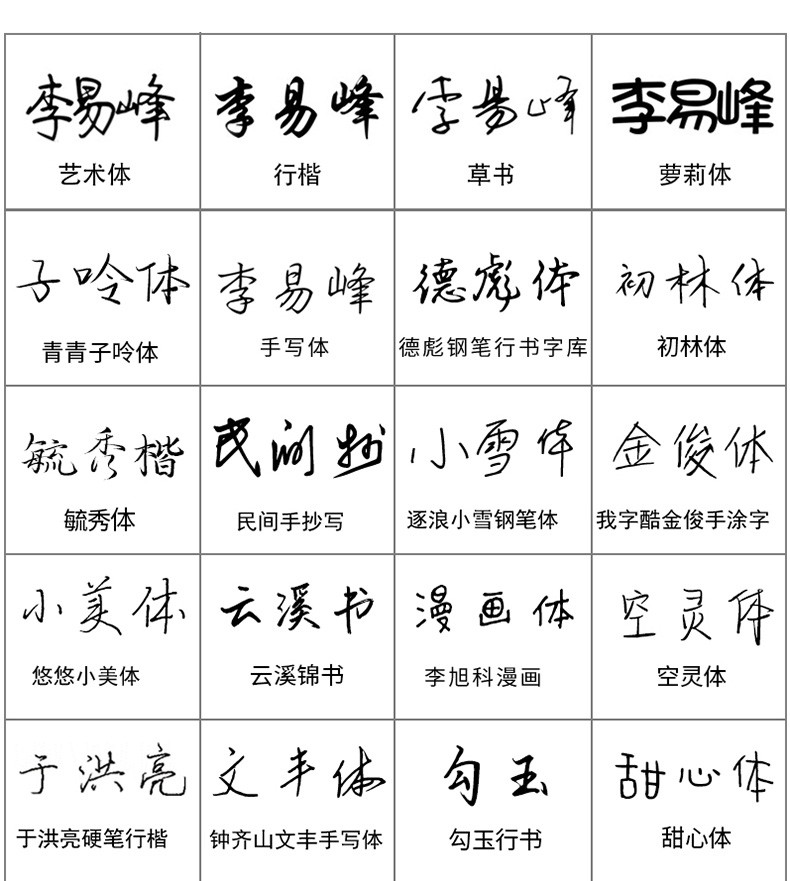 李易峰 李易峰 李易峰 李易峰
艺术体 行楷 草书 萝莉体
子呤体 李易峰 德彪体 初林体
青青子呤体 手写体 德彪钢笔行书字库 初林体
毓秀楷 民间抄 小雪体 金俊体
毓秀体 民间手抄写 逐浪小雪钢笔体 我字酷金俊手涂字
小美体 云溪书 漫画体 空灵体
悠悠小美体 云溪锦书 李旭科漫画 空灵体
于洪亮 文丰体 勾玉 甜心体
于洪亮硬笔行楷 钟齐山文丰手写体 勾玉行书 甜心体